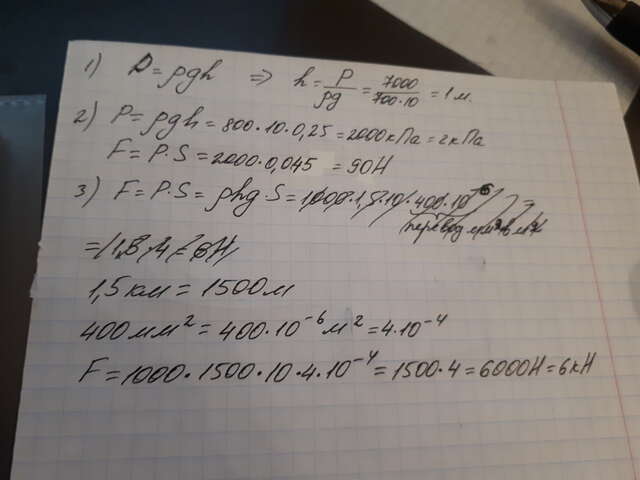 1) P = ρgh ⇒ h = P/ρg = 7000/700·10 = 1 м.
2) P = ρgh = 800·10·0,25 = 2000 кПа = 2 кПа
F = P·S = 2000·0,045 = 90 Н
3) F = P·S = ρhg S = 1000·1,5·10·400·10⁻⁶ =
= 1,5·4 = 6 Н
1,5 км = 1500 м
400 мм² = 400·10⁻⁶ м² = 4·10⁻⁴
F = 1000·1500·10·4·10⁻⁴ = 1500·4 = 6000 Н = 6 кН